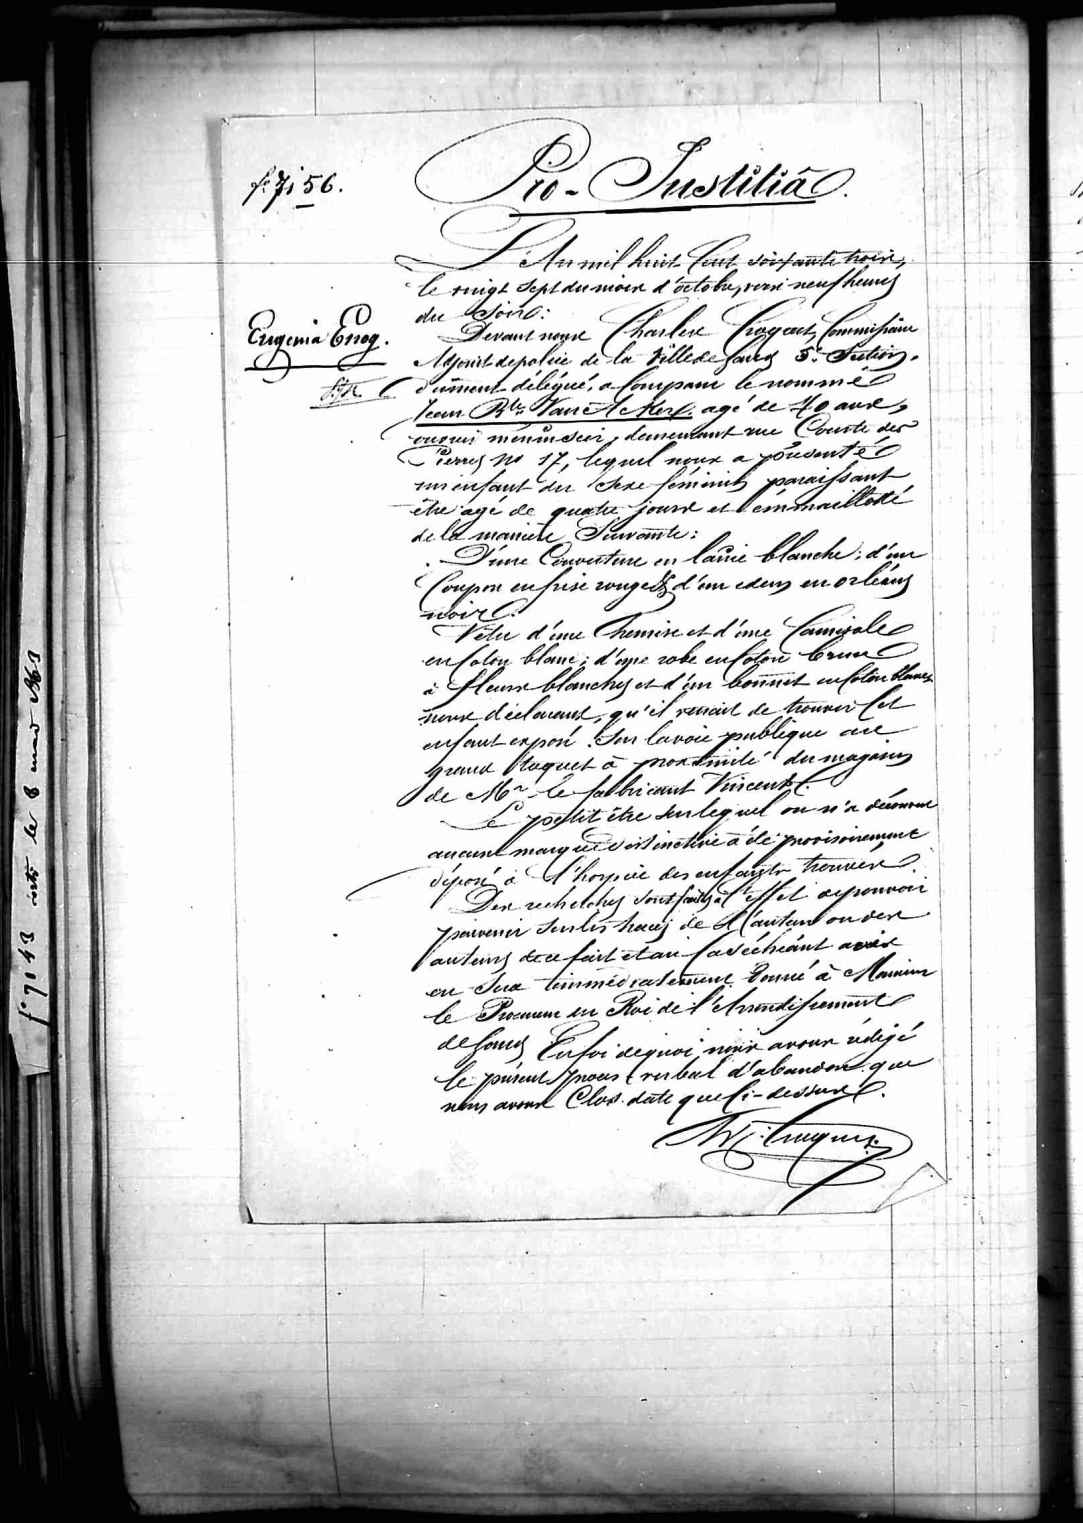 fo 7156.
Pro-Justitiâ.
Eugenia Enog.
L'An mil huit Cent soixante trois,
le vingt sept du mois d'octobre, vers neuf heures
du Soir:
Devant nous Charles Commissaire
Adjoint de police de la Ville de Gand 5e Section,
dument délégué, a Comparu le nommé
Jean Bte Van Acker, agé de 40 ans,
ouvrier ménuisier, demeurant rue Courte des
Pierres No 17, lequel nous a présenté
un enfant du Sexe féminin paraissant
être agé de quatre jours et emmailloté
de la maniere Suivante:
D'une Couverture en laine blanche; d'un
Coupon en frise rouge & d'un en orléans
noir.
Vêtu d'une Chemise et d'une Camisole
en Coton blanc; d'une robe en Coton brun
à fleurs blanches et d'un bonnet en Coton blanc
nous déclarant, qu'il venait de trouver Cet
enfant exposé Sur la voie publique au
grand Toquet à proximité du magasin
de Mr le fabricant Vincent.
Le petit être sur lequel on n'a découvert
aucune marque distinctive a été provisoirement
déposé à l'hospice des enfants trouvés.
Des recherches sont faites à l'effet de pouvoir
parvenir sur les traces de l'auteur ou des
auteurs de ce fait et au Cas échéant avis
en Sera immédiatement donné à Monsieur
le Procureur du Roi de l'Arrondissement
de Gand. En foi de quoi nous avons rédigé
le présent procès-verbal d'abandon que
nous avons Clos date que Ci-dessus.
fo 7143 le 8 mars 1863